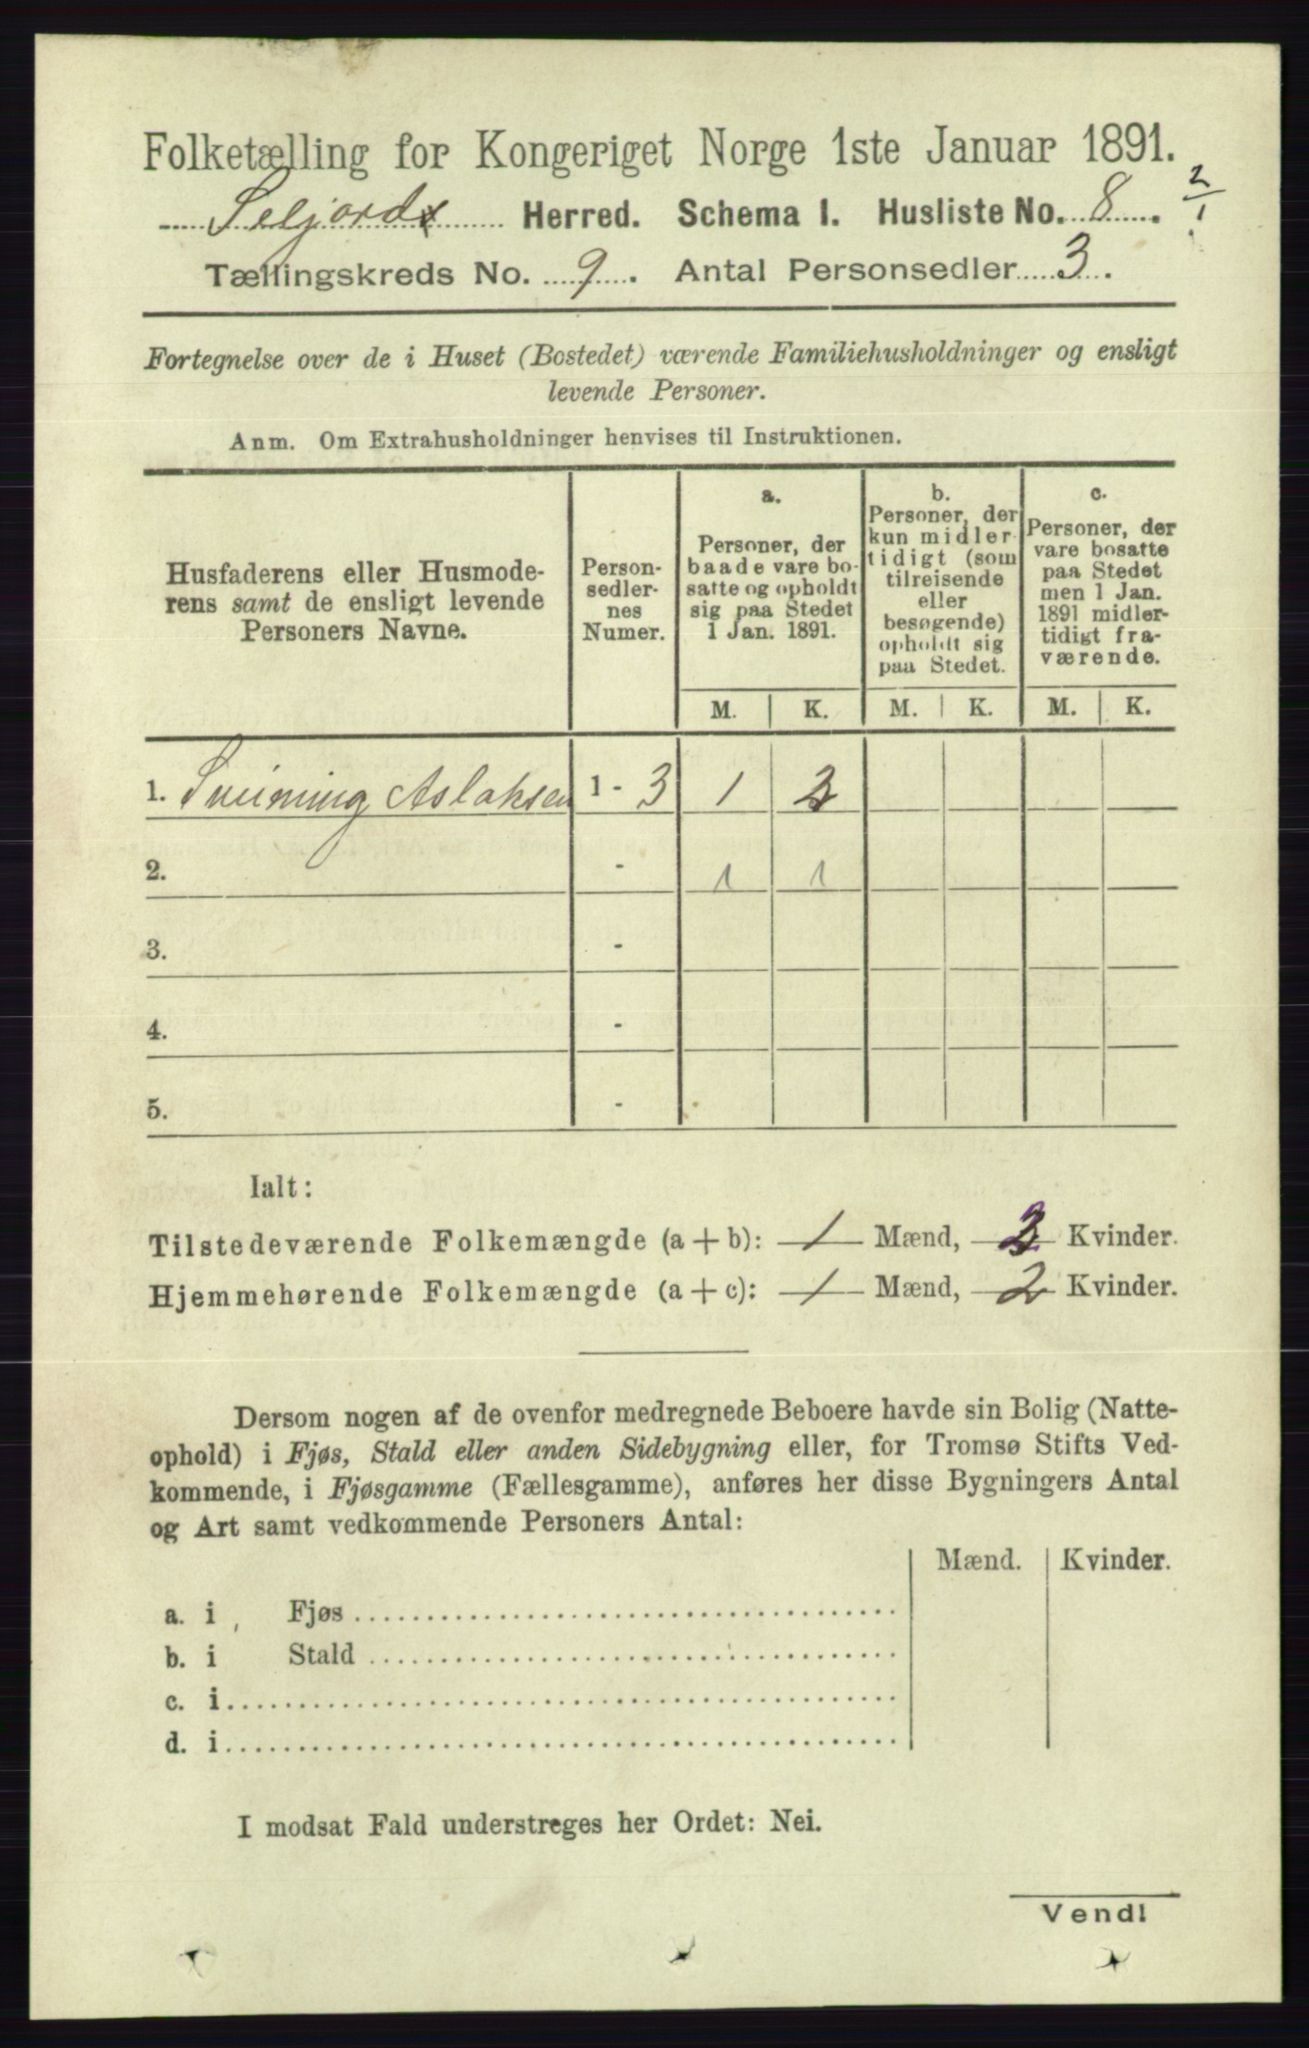 Folketælling for Kongeriget Norge 1ste Januar 1891.
Seljord Herred. Schema I. Husliste No. 8. 2/1
Tællingskreds No. 9. Antal Personsedler 3.
Fortegnelse over de i Huset (Bostedet) værende Familiehusholdninger og ensligt
levende Personer.
Anm. Om Extrahusholdninger henvises til Instruktionen.
Husfaderens eller Husmode-
rens samt de ensligt levende
Personers Navne.
Person-
sedler-
nes
Numer.
a.
Personer, der
baade vare bo-
satte og opholdt
sig paa Stedet
1 Jan. 1891.
b.
Personer, der
kun midler-
tidigt (som
tilreisende
eller
besøgende)
opholdt sig
paa Stedet.
c.
Personer, der
vare bosatte
paa Stedet
men 1 Jan.
1891 midler-
tidigt fra-
værende.
M. K. M. K. M. K.
1. Sveinung Aslaksen 1 - 3 1 2
2. - 1 1
3. -
4. -
5. -
Ialt:
Tilstedeværende Folkemængde (a + b): 1 Mænd, 2 Kvinder.
Hjemmehørende Folkemængde (a + c): 1 Mænd, 2 Kvinder.
Dersom nogen af de ovenfor medregnede Beboere havde sin Bolig (Natte-
ophold) i Fjøs, Stald eller anden Sidebygning eller, for Tromsø Stifts Ved-
kommende, i Fjøsgamme (Fællesgamme), anføres her disse Bygningers Antal
og Art samt vedkommende Personers Antal:
Mænd. Kvinder.
a. i Fjøs
b. i Stald
c. i
d. i
I modsat Fald understreges her Ordet: Nei.
Vend!